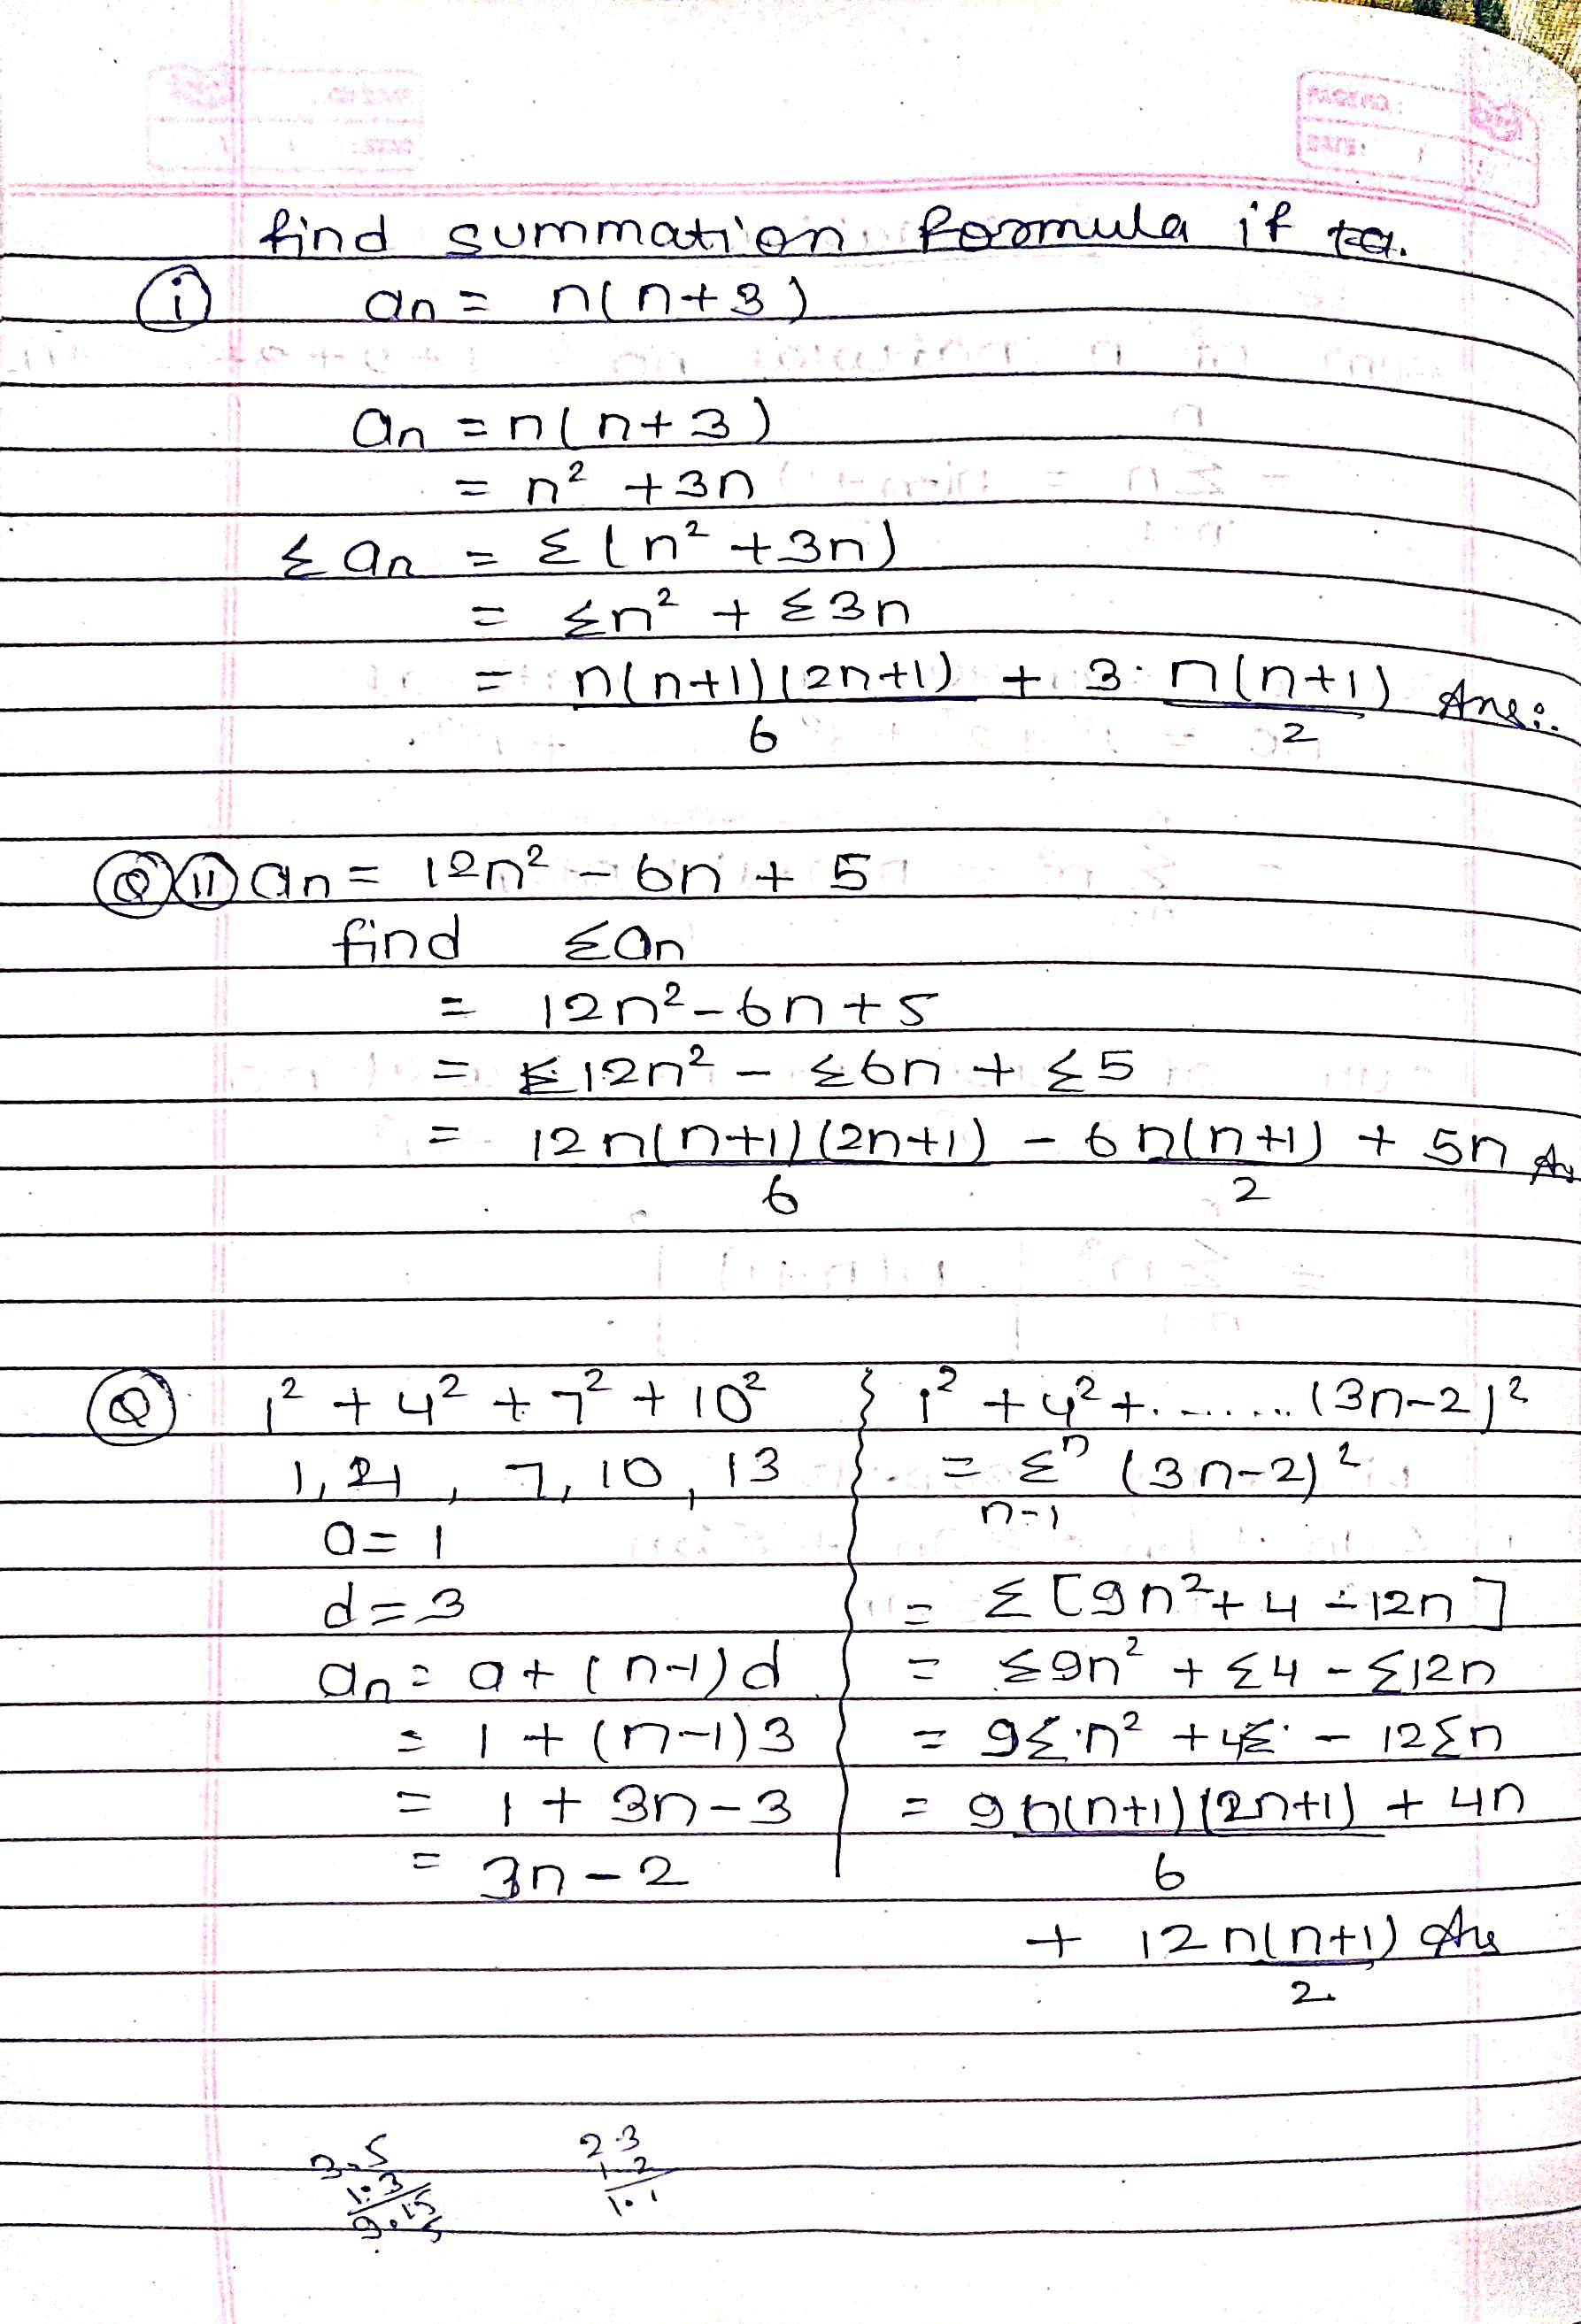 find summation formula if
(i) an = n(n+3)
an = n(n+3)
= n² + 3n
Σ an = Σ(n² + 3n)
= Σn² + Σ3n
= n(n+1)(2n+1)/6 + 3·n(n+1)/2 Ans:.
Q (ii) an = 12n² - 6n + 5
find Σan
= 12n² - 6n + 5
= Σ12n² - Σ6n + Σ5
= 12 n(n+1)(2n+1)/6 - 6 n(n+1)/2 + 5n
Q 1² + 4² + 7² + 10²
1, 4, 7, 10, 13
a = 1
d = 3
an = a + (n-1)d
= 1 + (n-1)3
= 1 + 3n - 3
= 3n - 2
1² + 4² + ....... (3n-2)²
= Σⁿ (3n-2)²
n-1
= Σ [9n² + 4 - 12n]
= Σ9n² + Σ4 - Σ12n
= 9Σn² + 4Σ - 12Σn
= 9 n(n+1)(2n+1)/6 + 4n
+ 12 n(n+1)/2 Ans